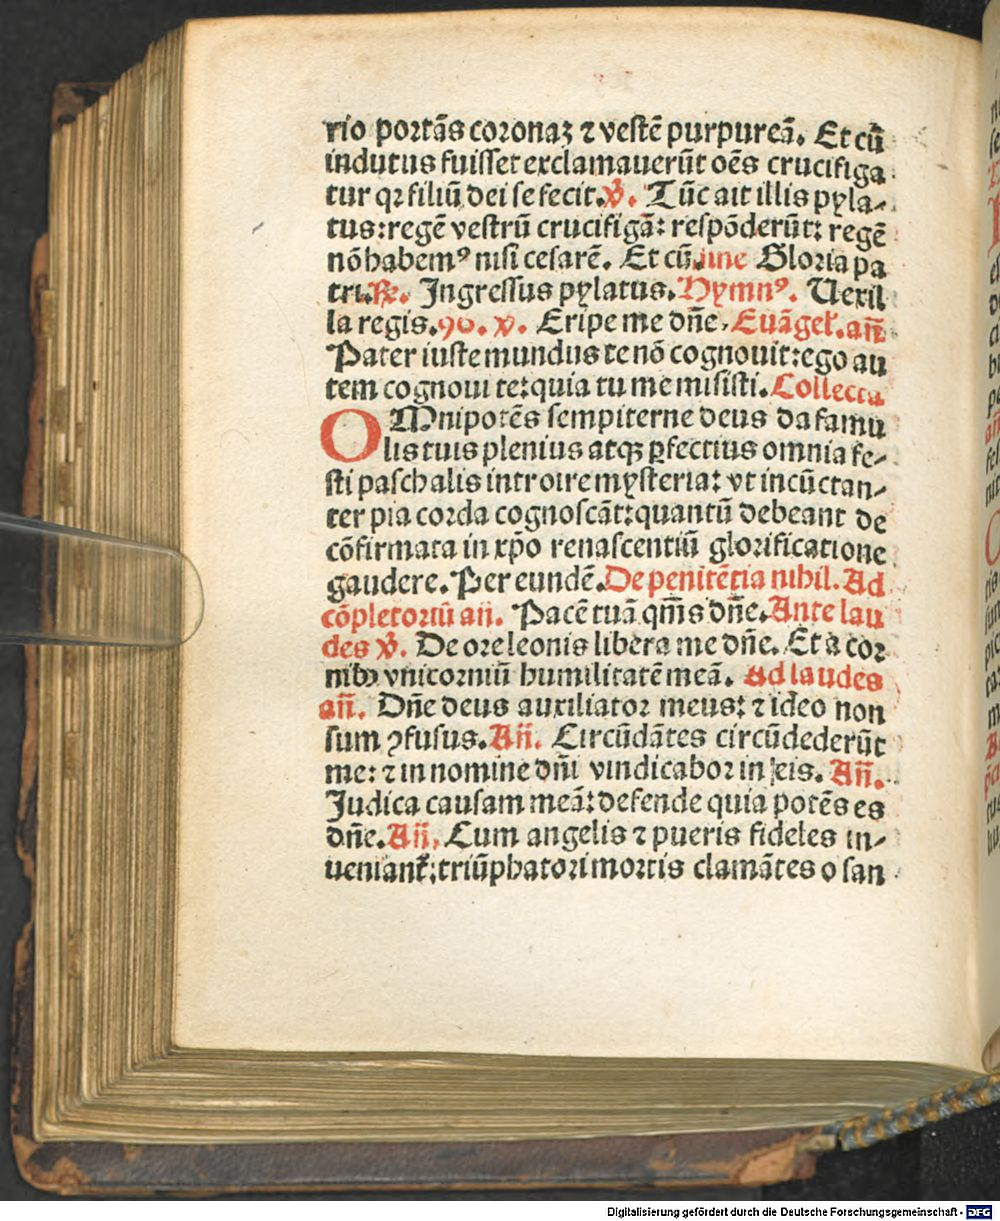 rio portãs coronaꝫ ⁊ vestē purpureã. Et cũ
indutus fuisset exclamauerũt oẽs crucifiga
tur qꝛ filiũ dei se fecit. ℣. Tũc ait illis pyla-
tus: regē vestrũ crucifigã: respõderũt: regē
nõ habemꝰ nisi cesarē. Et cũ. iine Gloria pa
tri. ℟. Ingressus pylatus. Hymnꝰ. Uexil
la regis. 90. ℣. Eripe me dñe. Euãgel. añ
Pater iuste mundus te nõ cognouit: ego au
tem cognoui te: quia tu me misisti. Collecta
OMnipotēs sempiterne deus da famu
lis tuis plenius atqꝫ ꝑfectius omnia fe-
sti paschalis introire mysteria: vt incũctan-
ter pia corda cognoscãt: quantũ debeant de
cõfirmata in xp̃o renascentiũ glorificatione
gaudere. Per eundē. De penitētia nihil. Ad
cõpletoriũ añ. Pacē tuã qm̃s dñe. Ante lau
des ℣. De ore leonis libera me dñe. Et a cor
nibꝰ vnicorniũ humilitatē meã. Ad laudes
añ. Dñe deus auxiliator meus: ⁊ ideo non
sum ꝯfusus. Añ. Circũdãtes circũdederũt
me: ⁊ in nomine dñi vindicabor in eis. Añ.
Judica causam meã: defende quia potēs es
dñe. Añ. Cum angelis ⁊ pueris fideles in-
ueniant᷑: triũphatori mortis clamãtes o san
Digitalisierung gefördert durch die Deutsche Forschungsgemeinschaft - DFG